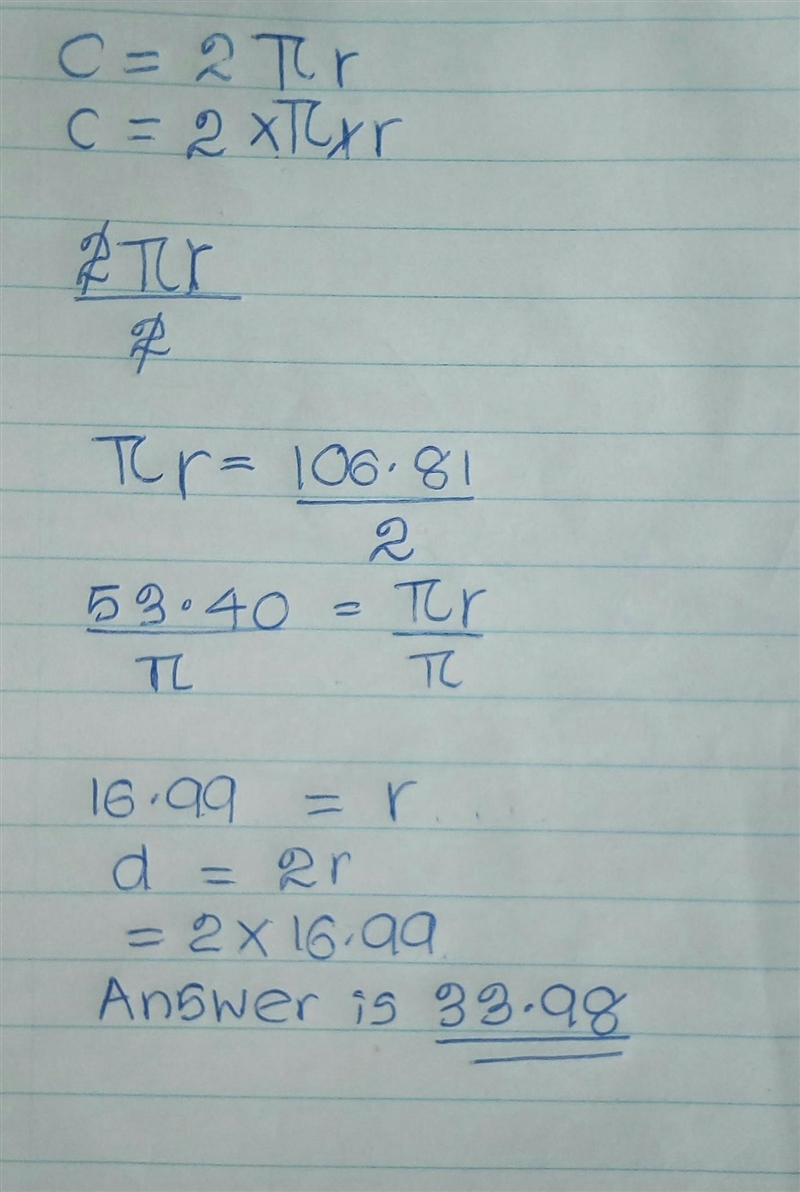 C = 2πr
C = 2 × π × r
2πr
2
πr = 106.81
2
53.40 = πr
π π
16.99 = r
d = 2r
= 2 × 16.99
Answer is 33.98